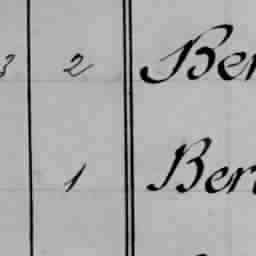 3 2 Ber
1 Ber